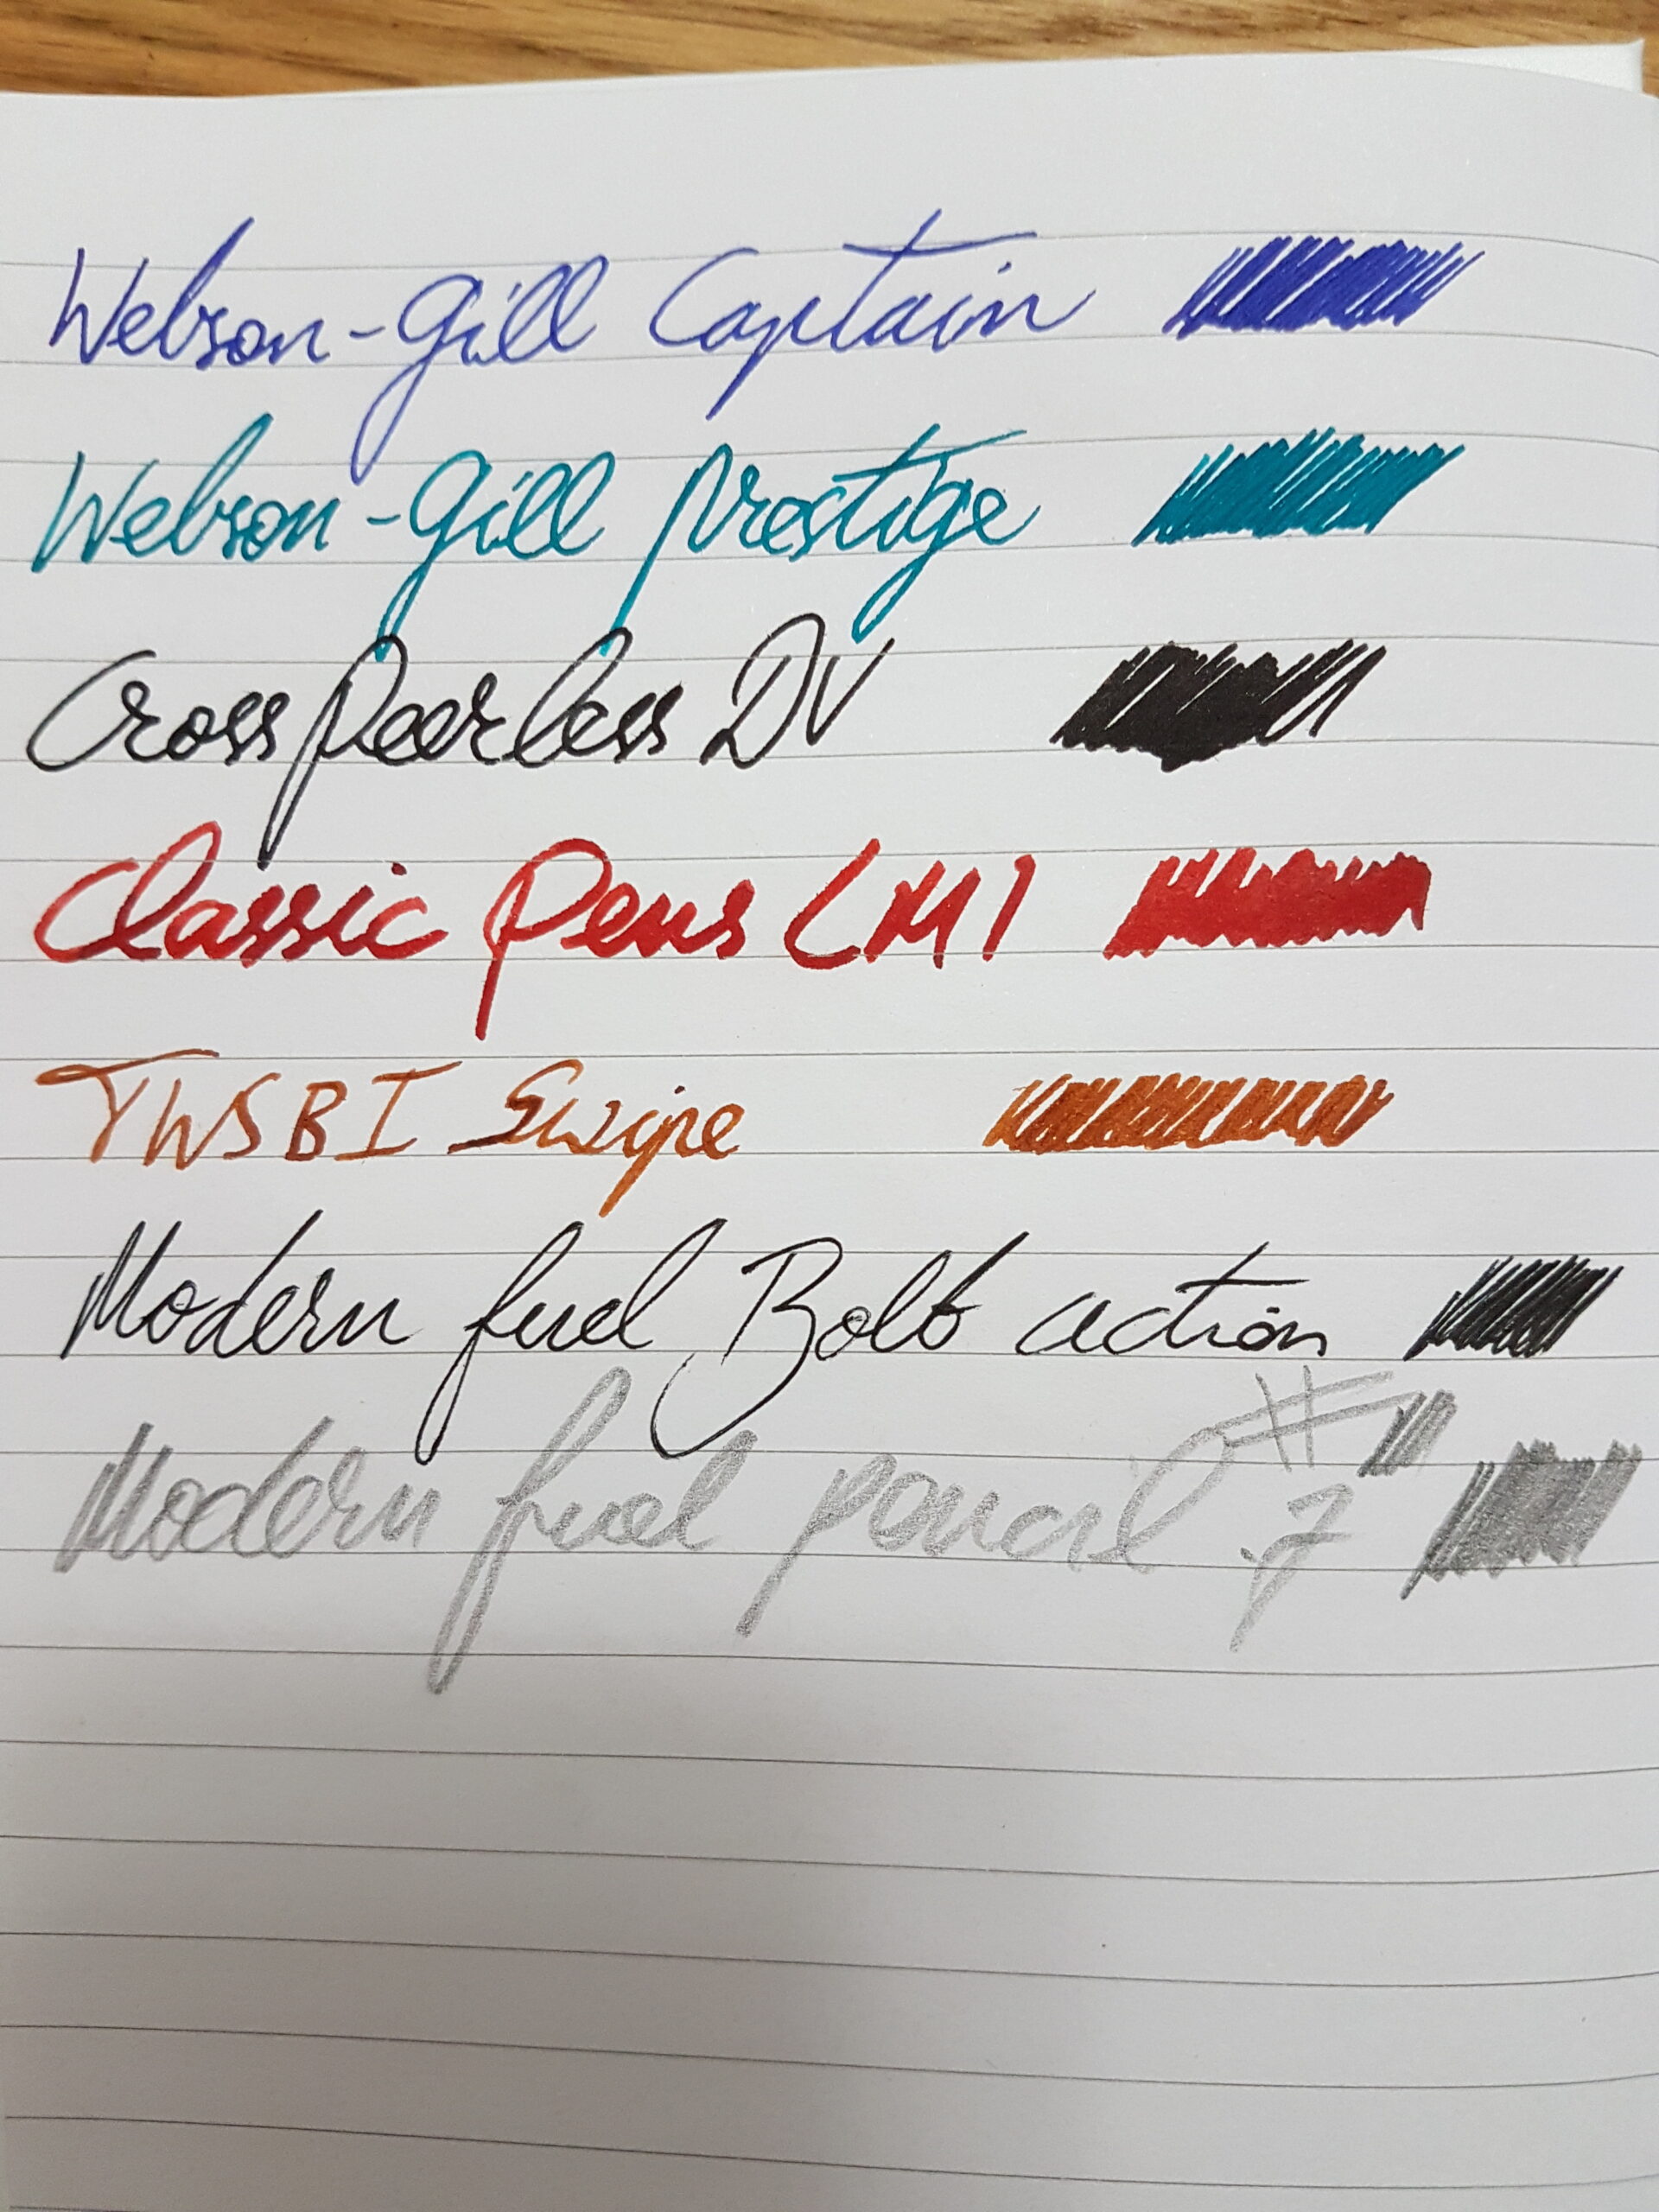 Webson-Gill Captain
Webson-Gill Prestige
Cross Peerless DV
Classic Pens LM1
TWSBI Swipe
Modern fuel Bolt action
Modern fuel pencil #.7